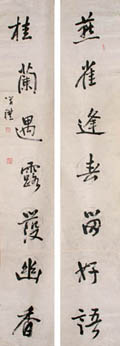 燕雀逢春留好語
桂蘭遇露發幽香